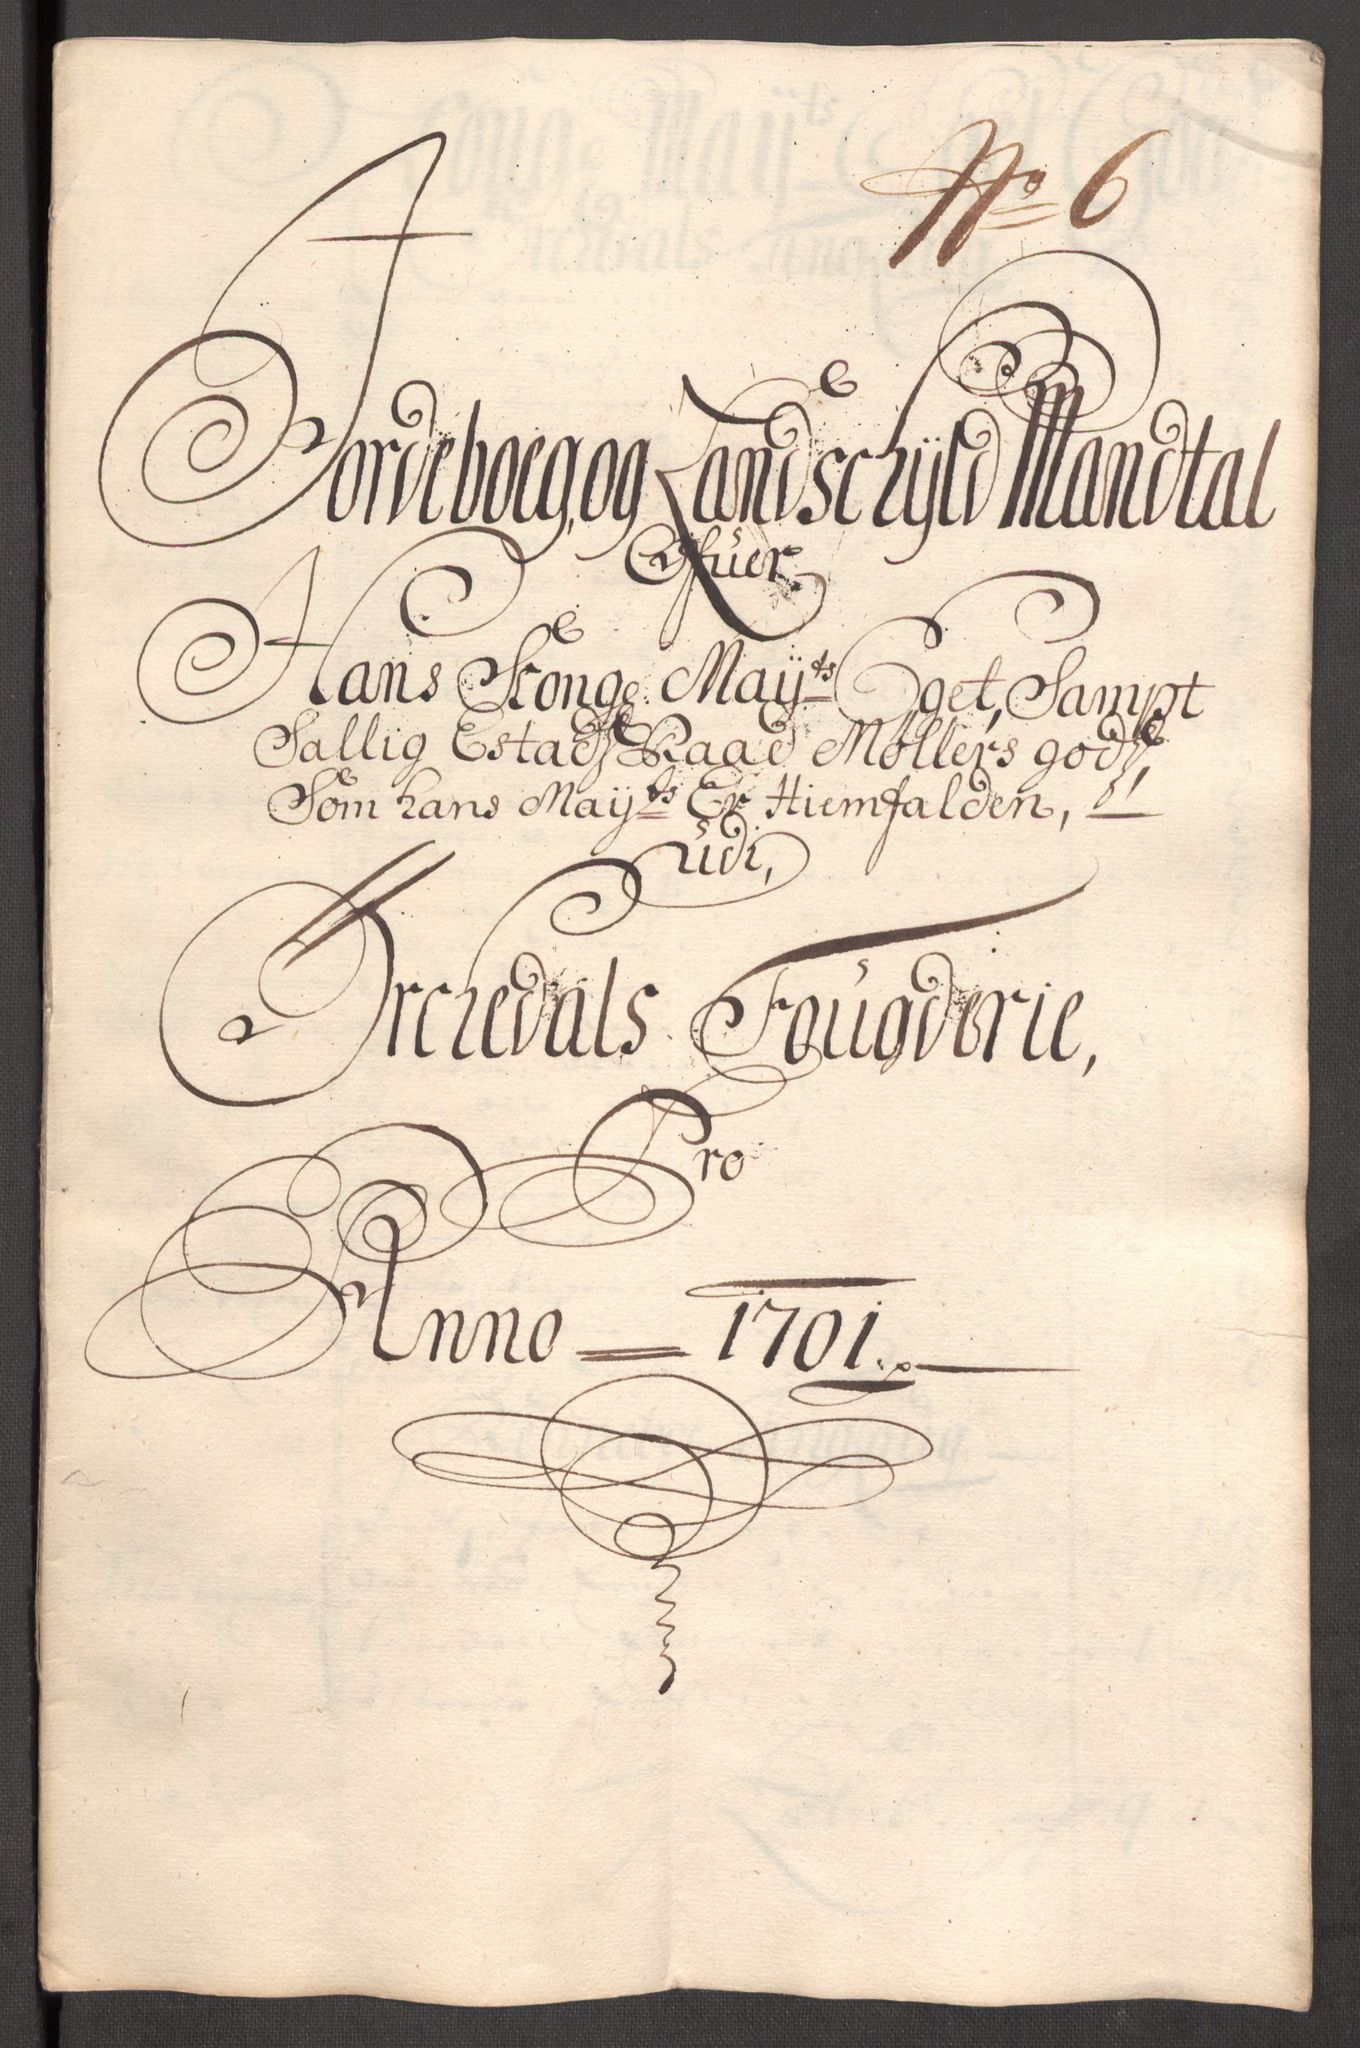 No 6
Jordeboeg, og Landschÿld Mandtal
Ofuer
Hans Konge. Maÿts Eget, Sampt
Sallig Estads Raad Møllers gods,
Som hans Maÿts Er Hiemfalden,
udi,
Orchedals Fougderie,
Pro
Anno 1701.